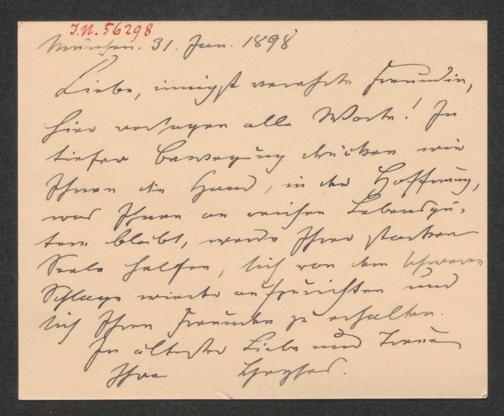 J.N. 56298
München. 31. Jan. 1898
Liebe, innigst verehrte Freundin,
hier versagen alle Worte! In
tiefer Bewegung drücken wir
Ihnen die Hand, in der Hoffnung,
was Ihnen an reichen Lebensgü-
tern bleibt, werde Ihrer starken
Seele helfen, sich von dem schweren
Schlage wieder aufzurichten und
sich Ihren Freunden zu erhalten.
In ältester Liebe und Treue
Ihre Heyses.